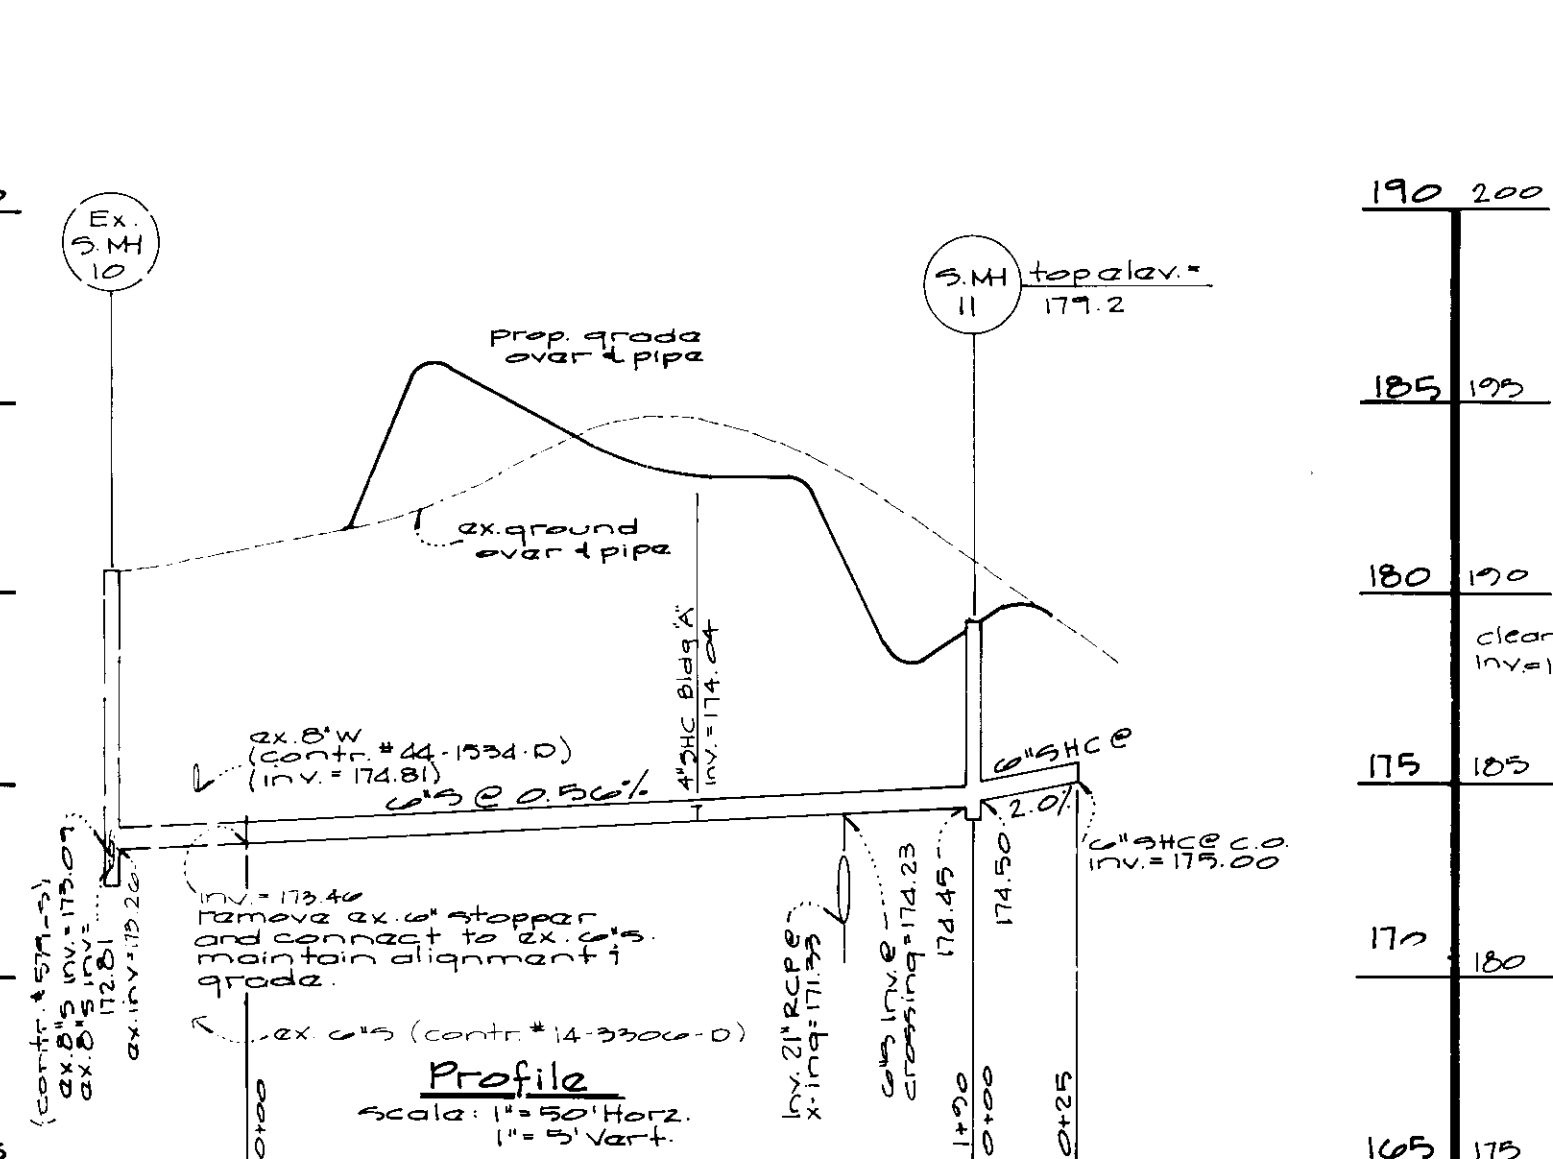 Ex.
S.MH
10
S.MH
11
top elev. =
179.2
prop. grade
over ℄ pipe
ex. ground
over ℄ pipe
4"SHC Bldg "A"
inv. = 174.04
ex. 8" W
(contr. # 44-1534-D)
(inv. = 174.81)
6"S @ 0.56%
6"SHC @
2.0%
6"SHC @ C.O.
inv. = 175.00
(contr. # 579-S)
ex. 8"S inv. = 173.09
ex. 8"S inv. =
172.81
ex. inv = 173.26
inv. = 173.46
remove ex. 6" stopper
and connect to ex. 6"S.
maintain alignment &
grade.
ex. 6"S (contr. # 14-3306-D)
Inv. 21" RCP @
x-ing = 171.33
6"S Inv. @
crossing = 174.23
174.45
174.50
0+00
1+90
0+00
0+25
Profile
scale: 1" = 50' Horz.
1" = 5' Vert.
190 200
185 195
180 190
clear
inv. = 1
175 185
170
180
165 175